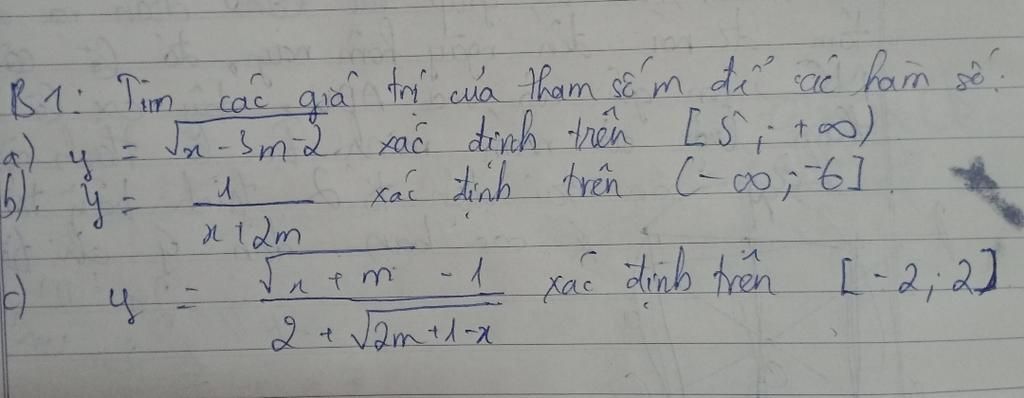 B1: Tìm các giá trị của tham số m để các hàm số:
a) y = √(x - 3m - 2) xác định trên [5; +∞)
b). y = 1/(x+2m) xác định trên (-∞; -6]
c) y = (√(x + m) - 1)/(2 + √(2m+1-x)) xác định trên [-2; 2]